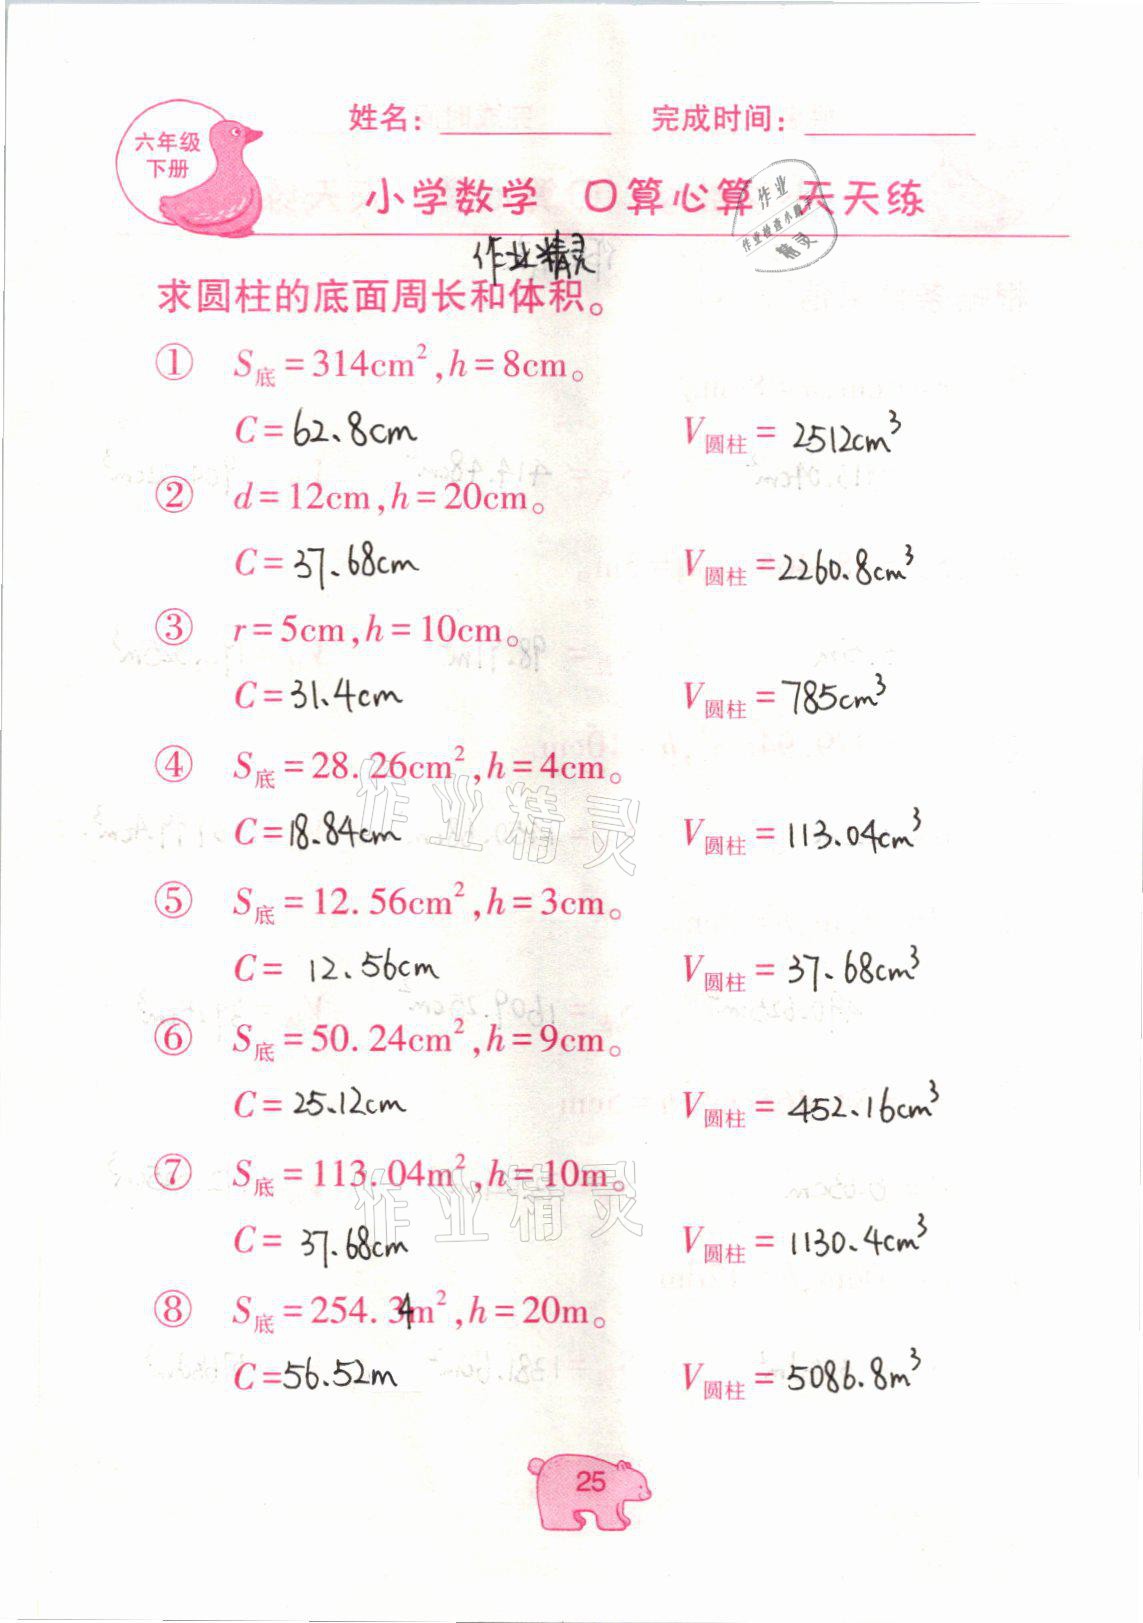 六年级
下册
姓名：
完成时间：
小学数学 口算心算 天天练
作业
作业检查小助手
精灵
作业精灵
求圆柱的底面周长和体积。
① S底=314cm²,h=8cm。
C=62.8cm V圆柱=2512cm³
② d=12cm,h=20cm。
C=37.68cm V圆柱=2260.8cm³
③ r=5cm,h=10cm。
C=31.4cm V圆柱=785cm³
④ S底=28.26cm²,h=4cm。
C=18.84cm V圆柱=113.04cm³
作业精灵
⑤ S底=12.56cm²,h=3cm。
C=12.56cm V圆柱=37.68cm³
⑥ S底=50.24cm²,h=9cm。
C=25.12cm V圆柱=452.16cm³
⑦ S底=113.04m²,h=10m。
作业精灵
C=37.68cm V圆柱=1130.4cm³
⑧ S底=254.34m²,h=20m。
C=56.52m V圆柱=5086.8m³
25